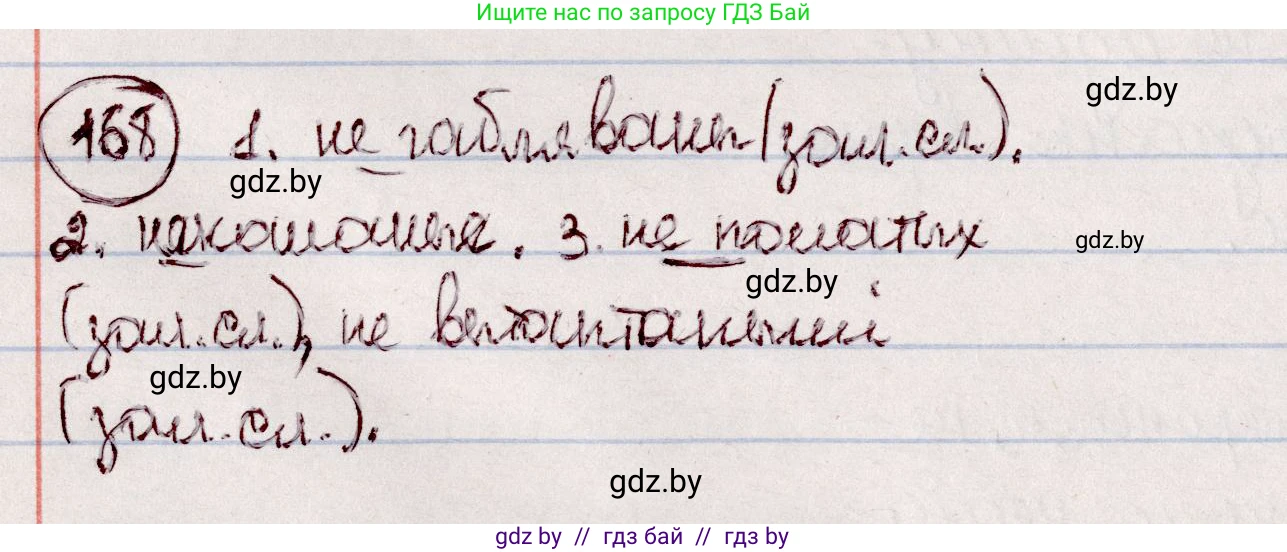 Ищите нас по запросу ГДЗ Бай
gdz.by
168 1. не габляваны (зал. сл.).
gdz.by
2. някошаныя. 3. не пачатых
gdz.by
gdz.by
(зал. сл.), не вытаптанымі
gdz.by
(зал. сл.).
gdz.by
gdz by // гдз бай // гдз by